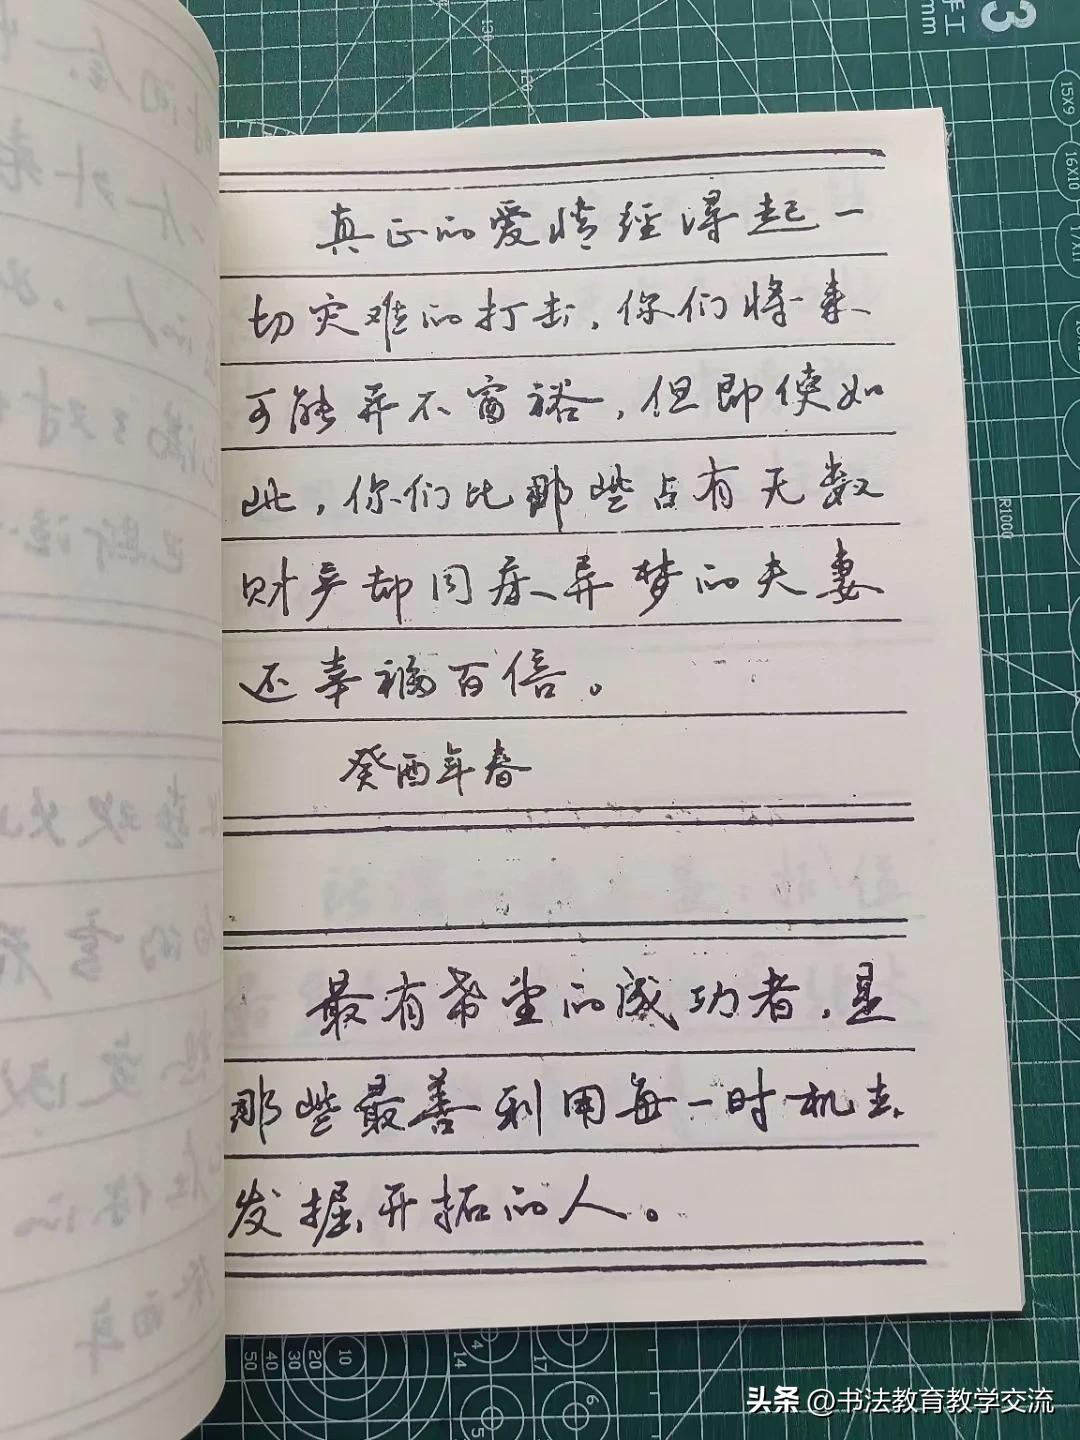 真正的爱情经得起一
切灾难的打击，你们将来
可能并不富裕，但即使如
此，你们比那些占有无数
财产却同床异梦的夫妻
还幸福百倍。
癸酉年春
最有希望的成功者，是
那些最善利用每一时机去
发掘开拓的人。
3
手工
mm
15X9
16X10
17X11
R1000
50 40 30 20 10
14
4
17
5
6
头条 @书法教育教学交流